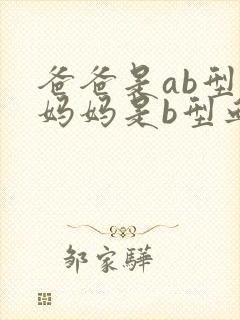 爸爸是ab型
妈妈是b型
邹家驊